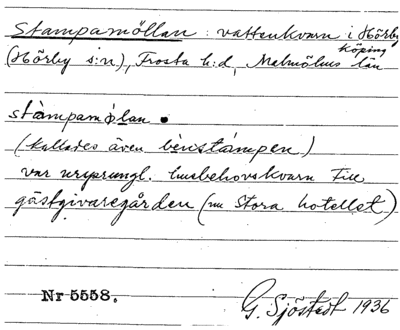 Stampamöllan : vattenkvarn i Hörby
köping
(Hörby s:n), Frosta h:d, Malmöhus län
stàmpamǿlan •
(kallades även bènstámpen)
var ursprungl. husbehovskvarn till
gästgivaregården (nu Stora hotellet)
Nr 5558.
G. Sjöstedt 1936